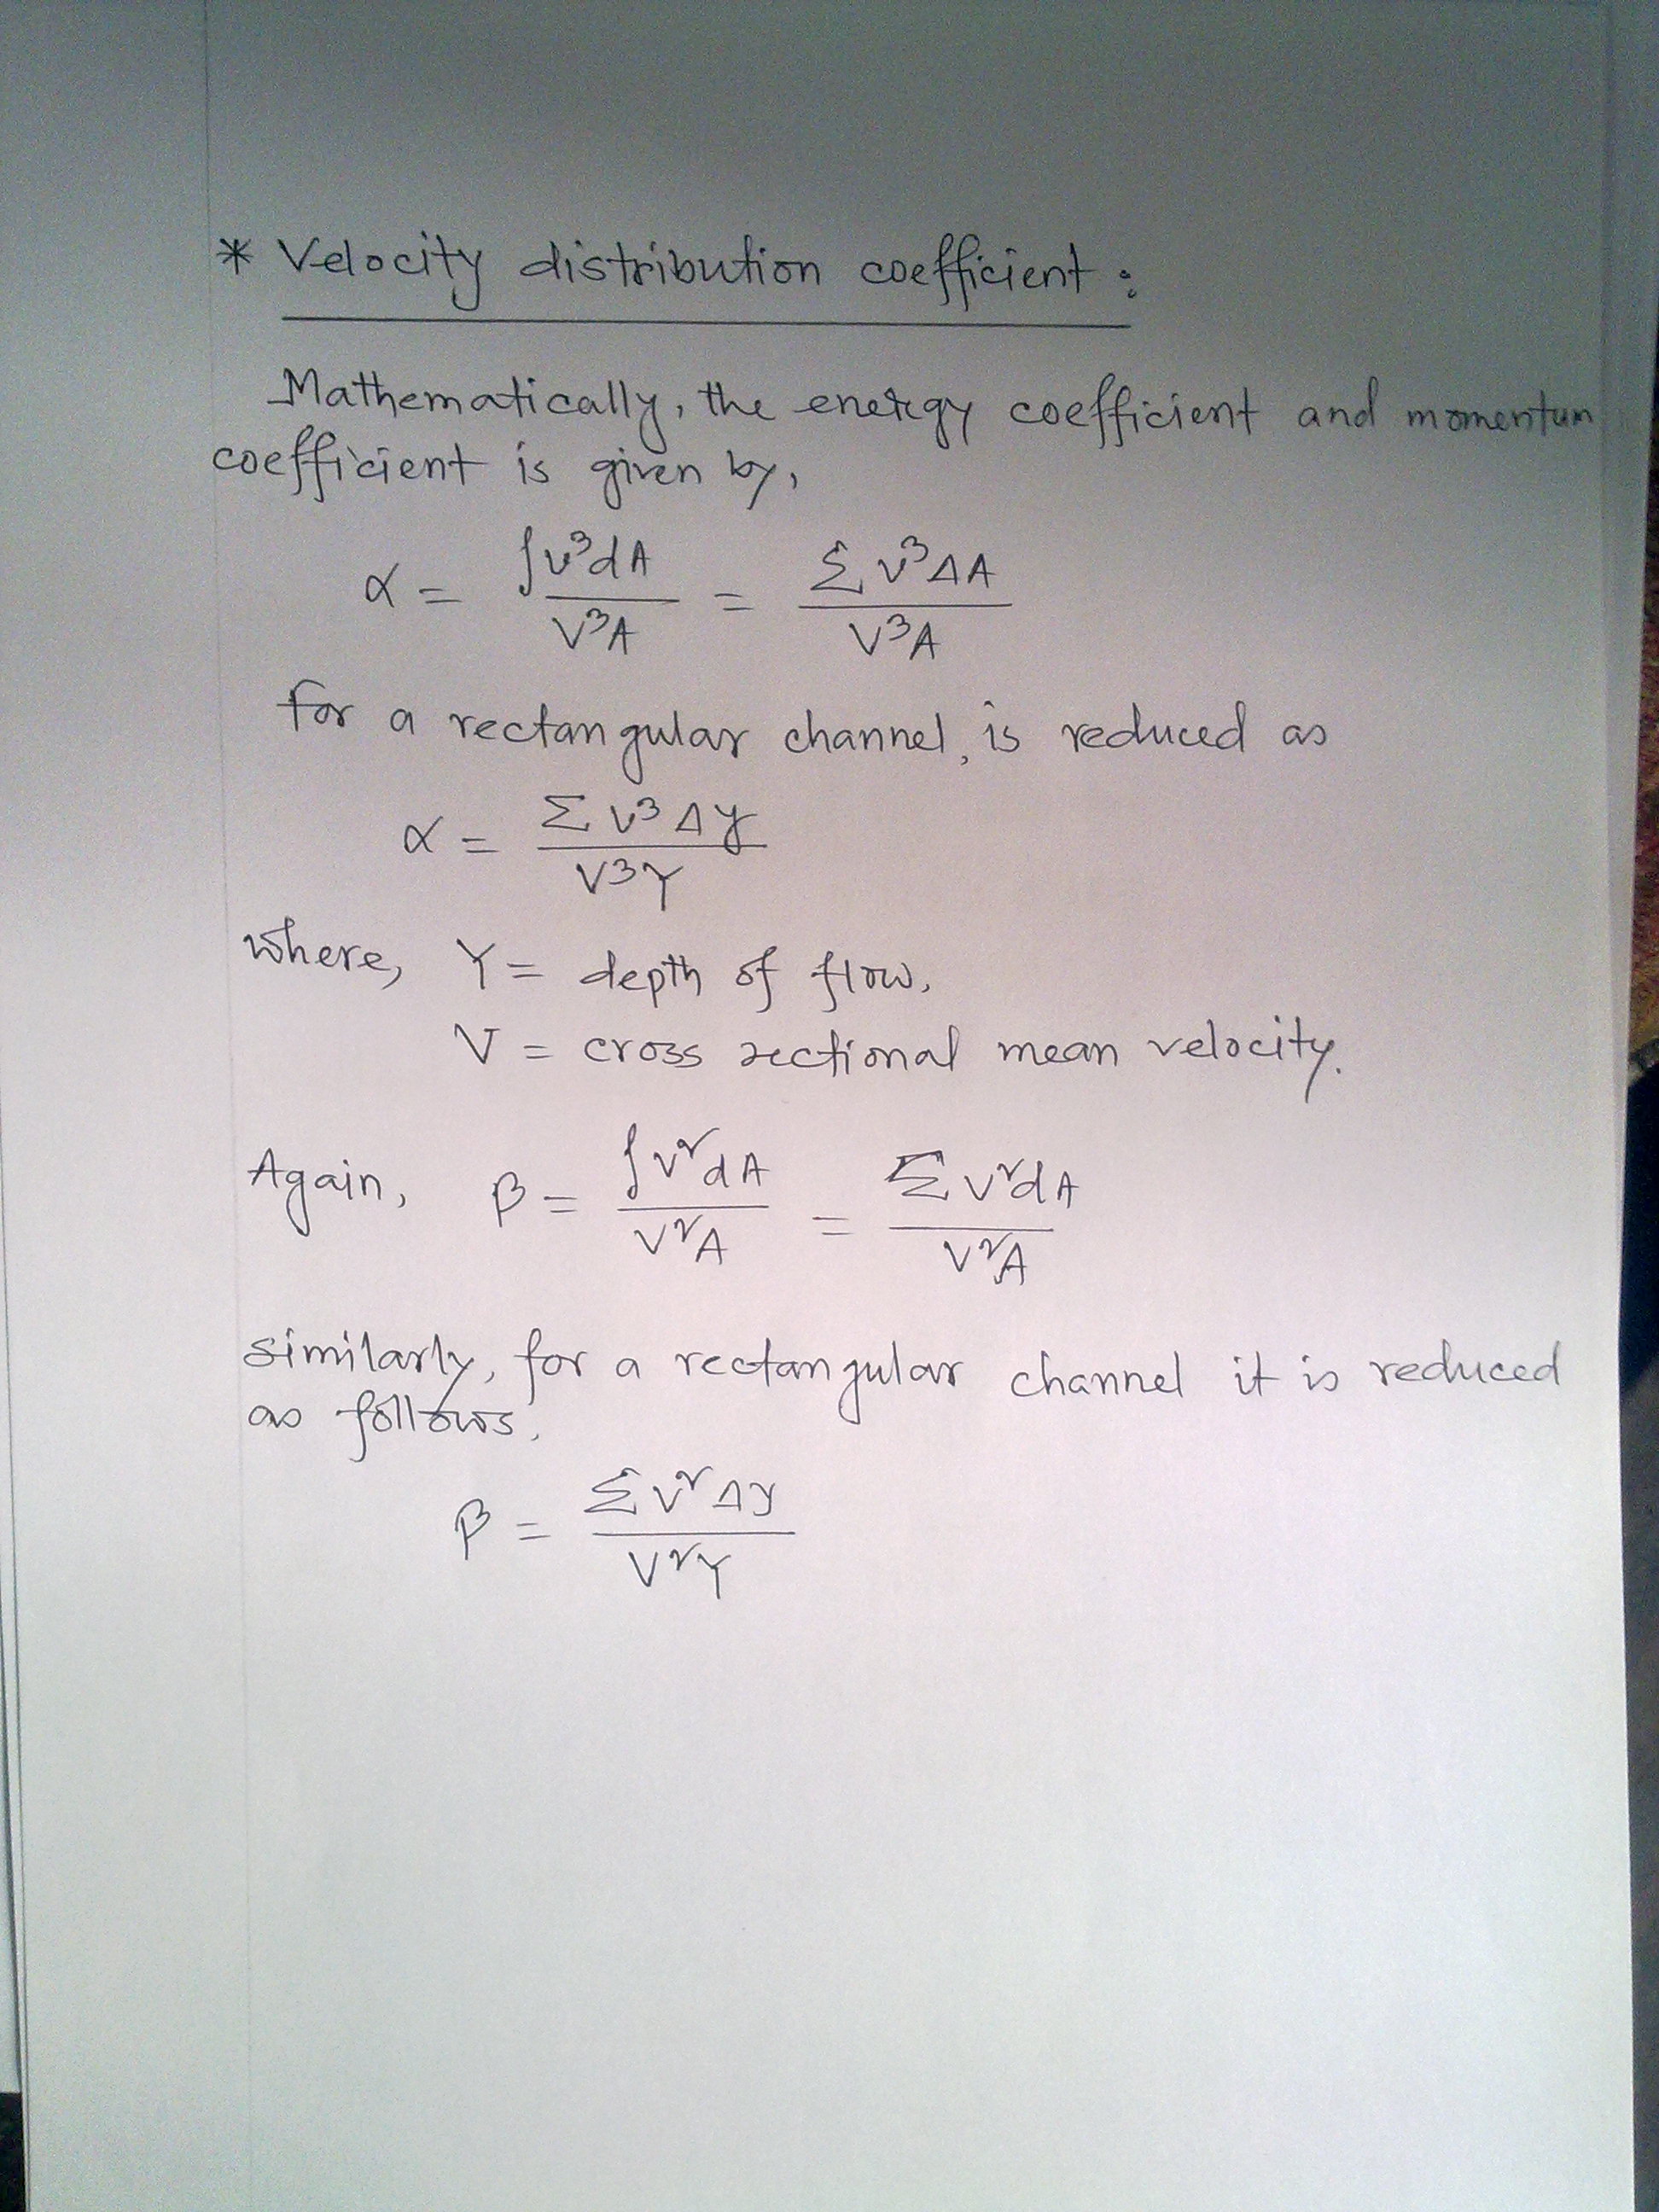 * Velocity distribution coefficient :
Mathematically, the energy coefficient and momentum
coefficient is given by,
α = ∫v³dA / V³A = Σ v³ΔA / V³A
for a rectangular channel, is reduced as
α = Σ v³ Δy / V³Y
where, Y = depth of flow,
V = cross sectional mean velocity.
Again, β = ∫v²dA / V²A = Σ v²dA / V²A
similarly, for a rectangular channel it is reduced
as follows,
β = Σ v² Δy / V²Y